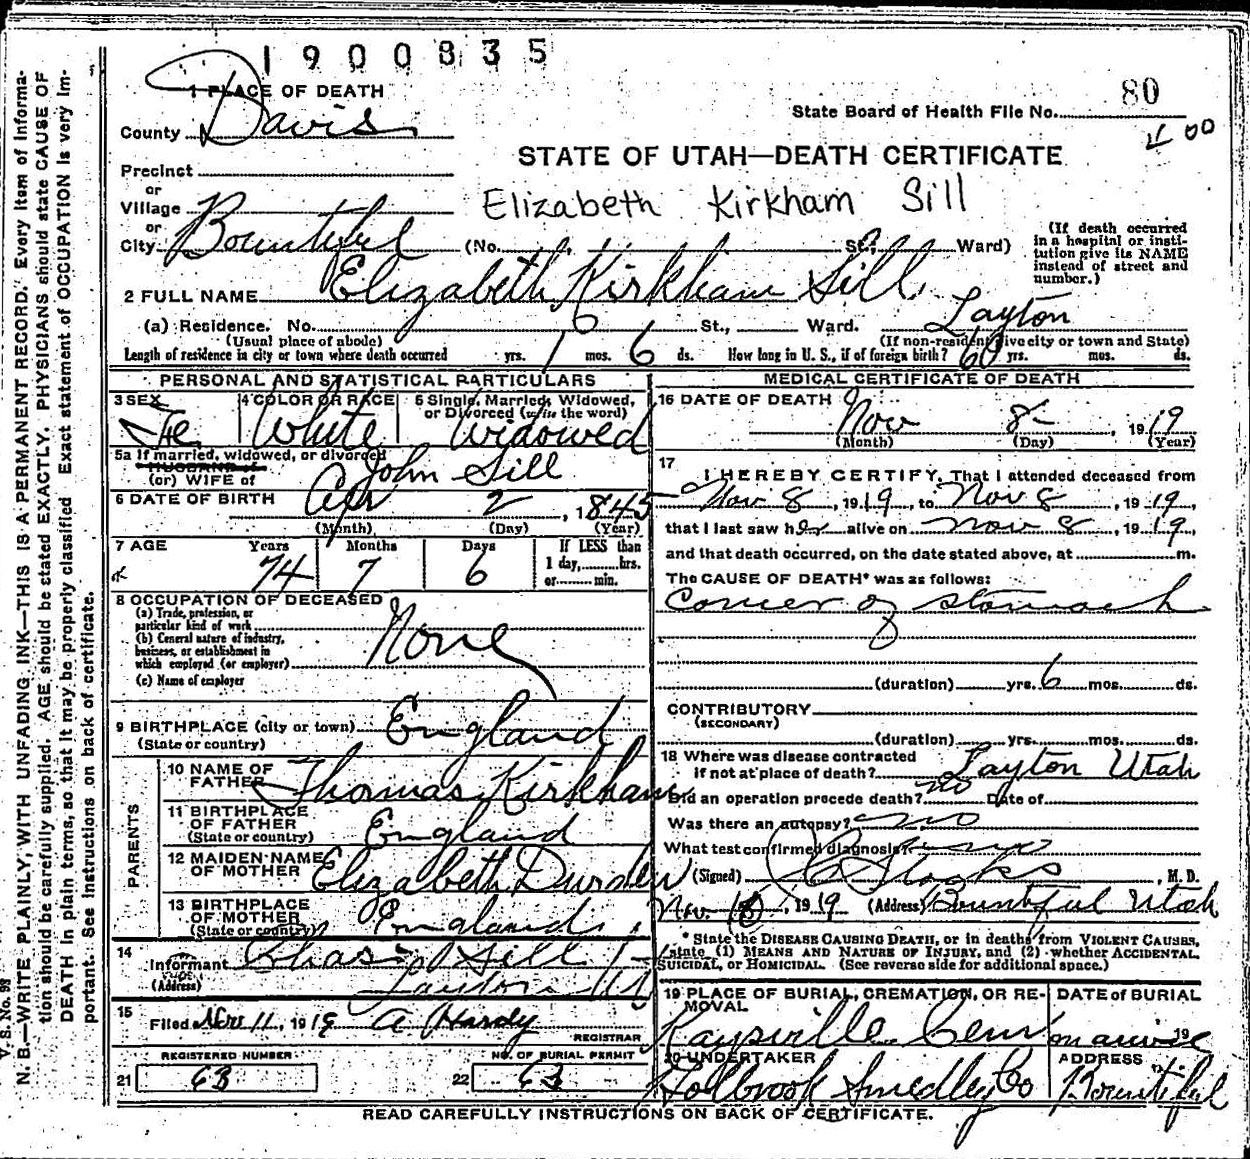 1900835
1 PLACE OF DEATH
80
State Board of Health File No.
County Davis
STATE OF UTAH—DEATH CERTIFICATE
Precinct
or
Village
Elizabeth Kirkham Sill
or
City Bountiful (No. St.; Ward)
(If death occurred in a hospital or institution give its NAME instead of street and number.)
2 FULL NAME Elizabeth Kirkham Sill
(a) Residence. No. St., Ward. Layton
(Usual place of abode) (If non-resident give city or town and State)
Length of residence in city or town where death occurred yrs. 1 mos. 6 ds. How long in U. S., if of foreign birth? 60 yrs. mos. ds.
PERSONAL AND STATISTICAL PARTICULARS
3 SEX Fe
4 COLOR OR RACE White
5 Single, Married, Widowed, or Divorced (write the word) Widowed
5a If married, widowed, or divorced
HUSBAND of
(or) WIFE of John Sill
6 DATE OF BIRTH Apr 2, 1845
(Month) (Day) (Year)
7 AGE Years Months Days If LESS than
74 7 6 1 day, hrs.
or min.
8 OCCUPATION OF DECEASED
(a) Trade, profession, or particular kind of work
None
(b) General nature of industry, business, or establishment in which employed (or employer)
(c) Name of employer
9 BIRTHPLACE (city or town) England
(State or country)
PARENTS
10 NAME OF FATHER Thomas Kirkham
11 BIRTHPLACE OF FATHER England
(State or country)
12 MAIDEN NAME OF MOTHER Elizabeth Durden
13 BIRTHPLACE OF MOTHER England
(State or country)
14
Informant Chas Sill
(Address) Layton
15
Filed Nov 11, 1919 A Hardy
REGISTRAR
REGISTERED NUMBER
21 63
NO. OF BURIAL PERMIT
22 63
MEDICAL CERTIFICATE OF DEATH
16 DATE OF DEATH Nov 8, 1919
(Month) (Day) (Year)
17
I HEREBY CERTIFY, That I attended deceased from
Nov 8, 1919, to Nov 8, 1919,
that I last saw her alive on Nov 8, 1919,
and that death occurred, on the date stated above, at m.
The CAUSE OF DEATH* was as follows:
Cancer of stomach
(duration) yrs. 6 mos. ds.
CONTRIBUTORY
(SECONDARY)
(duration) yrs. mos. ds.
18 Where was disease contracted
if not at place of death? Layton Utah
Did an operation precede death? no Date of
Was there an autopsy? no
What test confirmed diagnosis?
(Signed) Stocks, M. D.
Nov. 1919 (Address) Bountiful Utah
* State the DISEASE CAUSING DEATH, or in deaths from VIOLENT CAUSES,
state (1) MEANS AND NATURE OF INJURY, and (2) whether ACCIDENTAL,
SUICIDAL, or HOMICIDAL. (See reverse side for additional space.)
19 PLACE OF BURIAL, CREMATION, OR REMOVAL
Kaysville Cem
DATE OF BURIAL
19
20 UNDERTAKER
Holbrook Smedley Co
ADDRESS
Bountiful
READ CAREFULLY INSTRUCTIONS ON BACK OF CERTIFICATE.
V. S. No. 98
N. B.—WRITE PLAINLY, WITH UNFADING INK—THIS IS A PERMANENT RECORD. Every item of information
should be carefully supplied. AGE should be stated EXACTLY. PHYSICIANS should state CAUSE OF
DEATH in plain terms, so that it may be properly classified. Exact statement of OCCUPATION is very important.
See instructions on back of certificate.